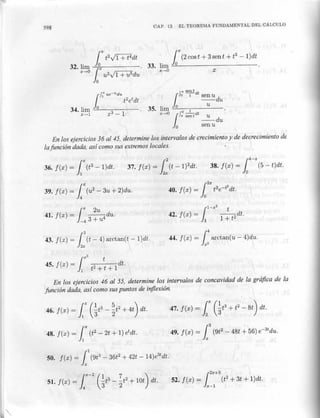 598 CAP. 13 EL TEOREMA FUNDAMENTAL DEL CÁLCULO
32. lim x→0 ∫₀ˣ t²√(1+t²)dt / ∫₀ˣ u²√(1+u²)du 33. lim x→0 ∫₀ˣ (2 cos t + 3 sen t + t² − 1)dt / x
34. lim x→1 t²eᵗdt / x³ − 1 35. lim x→0 sen u / u du / u / sen u du
En los ejercicios 36 al 45, determine los intervalos de crecimiento y de decrecimiento de
la función dada, así como sus extremos locales.
36. f(x) = ∫₁ˣ (t² − 1)dt. 37. f(x) = (t − 1)²dt. 38. f(x) = ∫₀⁴⁻ˣ (5 − t)dt.
39. f(x) = (u² − 3u + 2)du. 40. f(x) = t²e⁻ᵗ²dt.
41. f(x) = ∫₄ˣ 2u / 3 + u⁴ du. 42. f(x) = t / 1 + t² dt.
43. f(x) = (t − 4) arctan(t − 1)dt. 44. f(x) = arctan(u − 4)du.
45. f(x) = t / t² + t + 1 dt.
En los ejercicios 46 al 52, determine los intervalos de concavidad de la gráfica de la
función dada, así como sus puntos de inflexión.
46. f(x) = (1/3 t³ − 5/2 t² + 4t) dt. 47. f(x) = (1/3 t³ + t² − 8t) dt.
48. f(x) = (t² − 2t + 1) eᵗdt. 49. f(x) = (9t² − 48t + 56) e⁻³ᵗdu.
50. f(x) = (9t³ − 36t² + 42t − 14)e³ᵗdt.
51. f(x) = (1/3 t³ − 7/2 t² + 10t) dt. 52. f(x) = (t² + 3t + 1)dt.